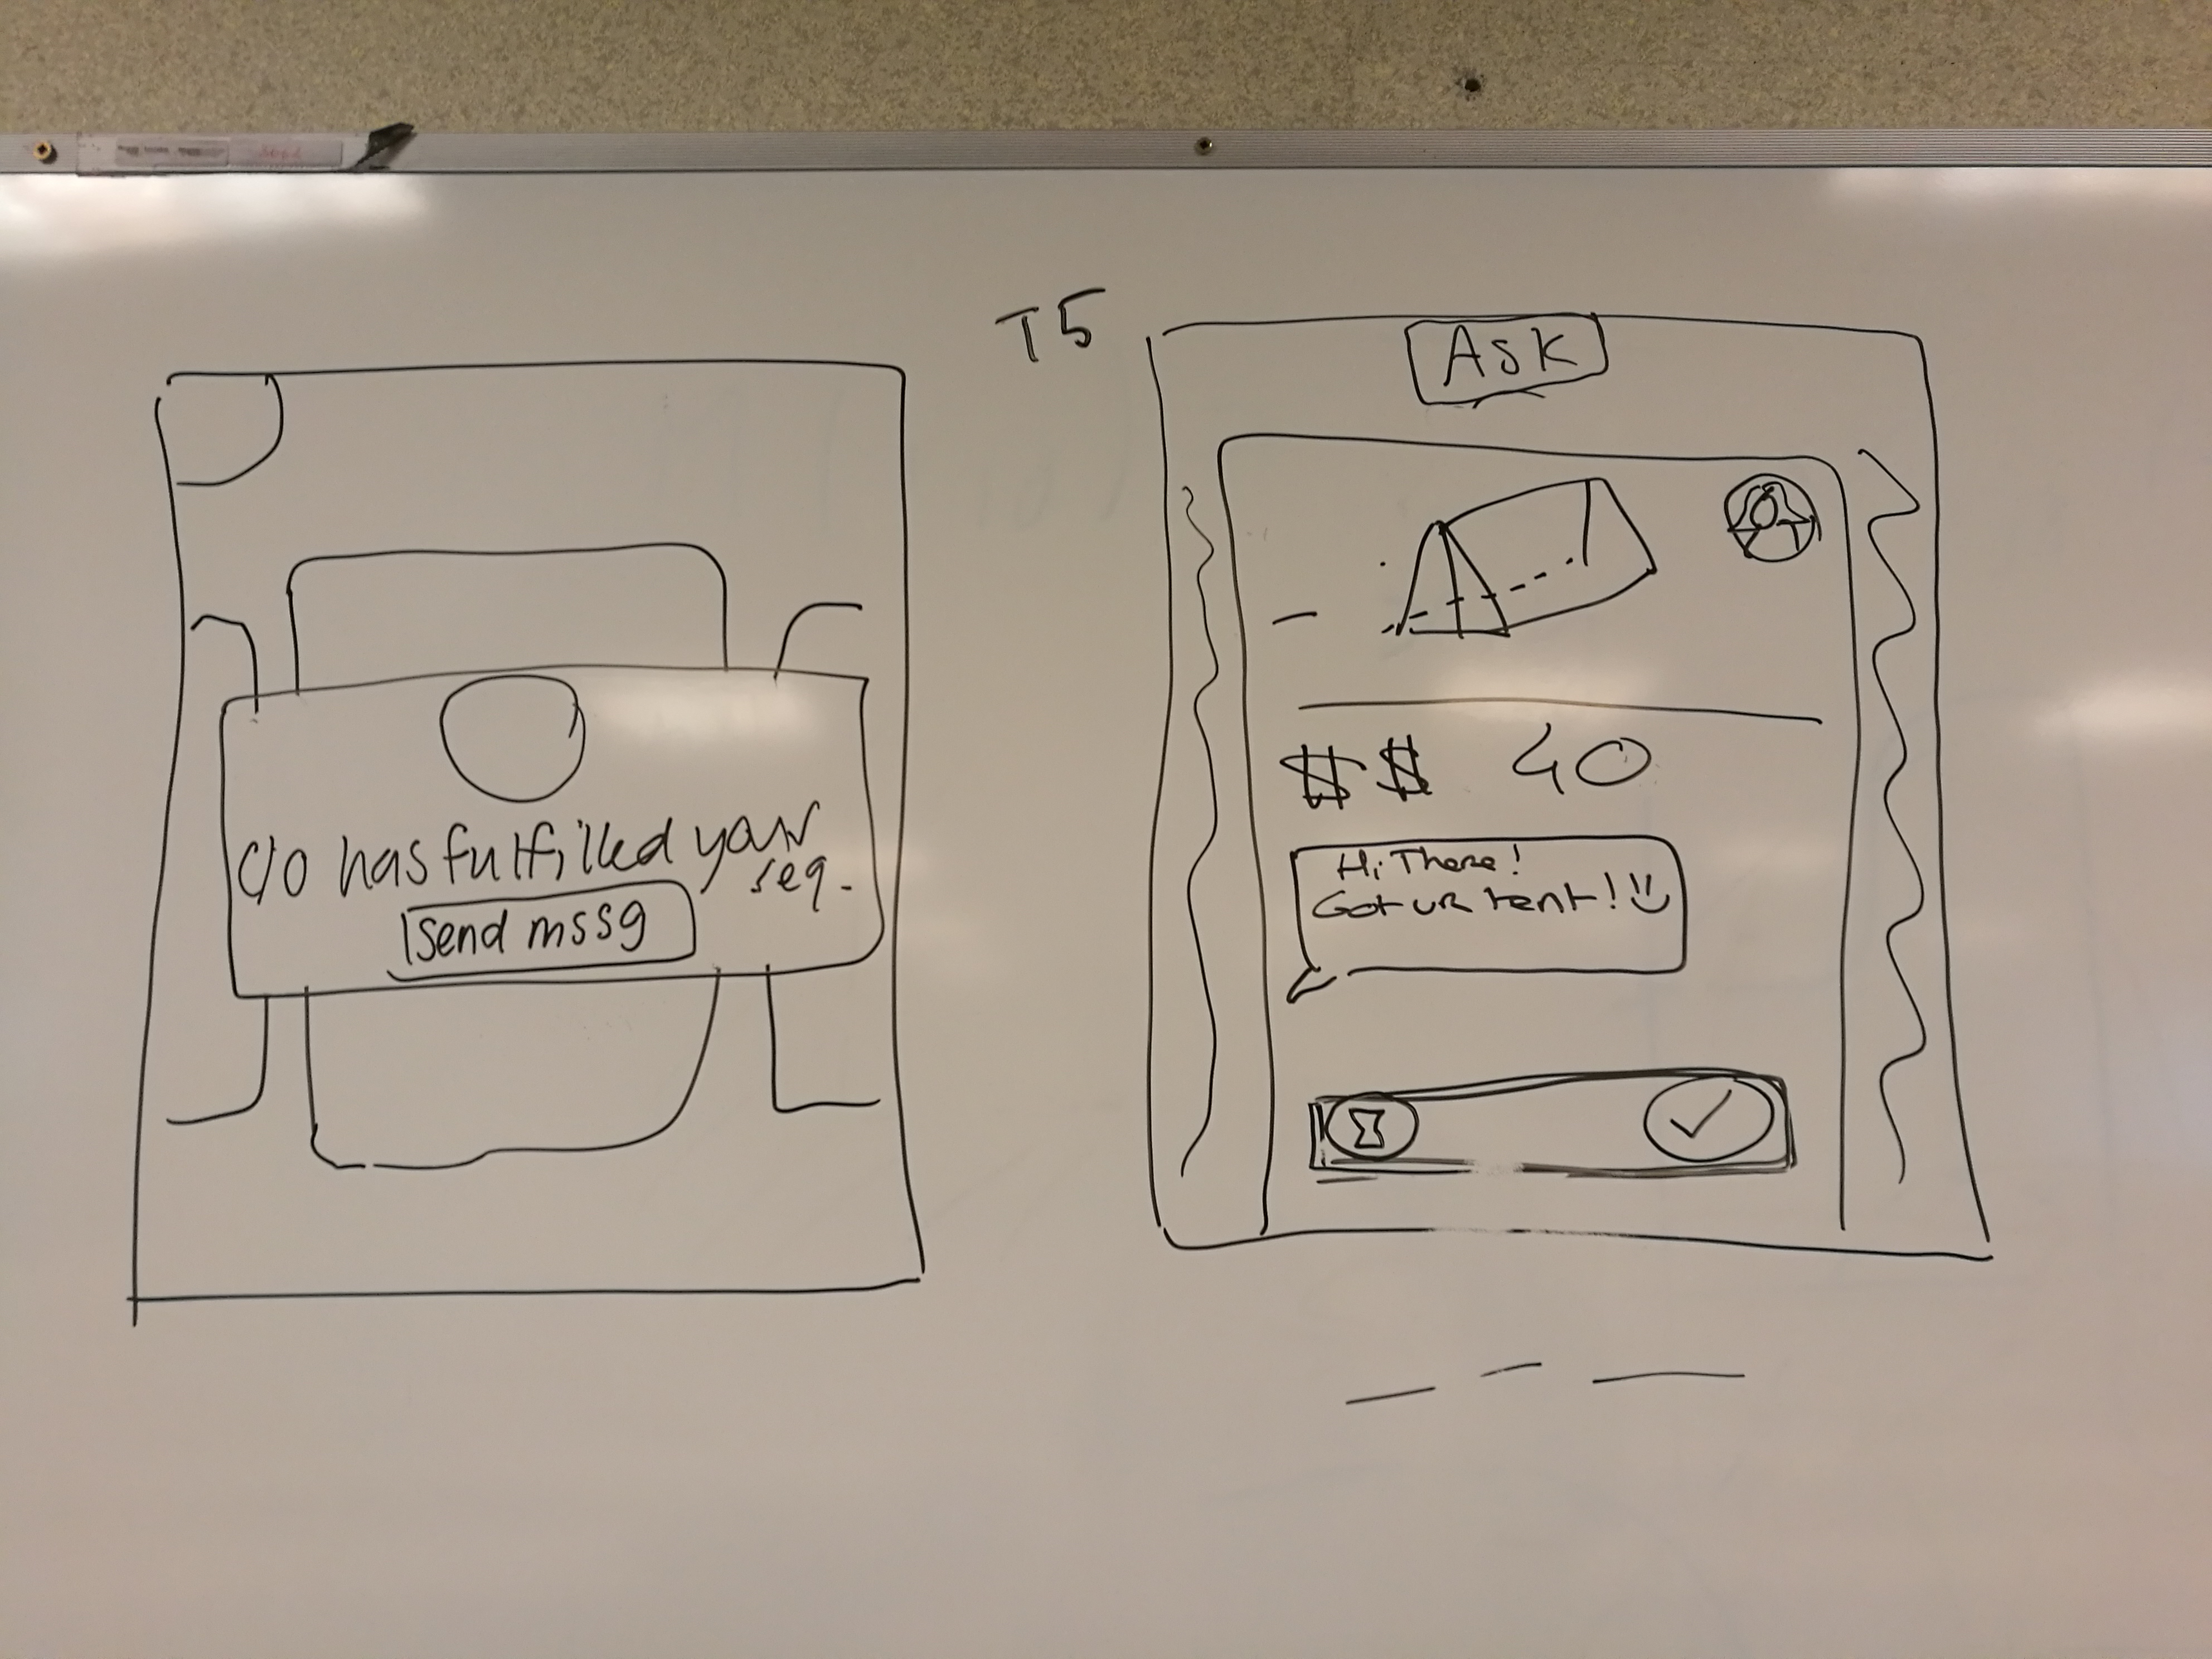 T5
has fulfilled your
req.
Send mssg
Ask
$$ 40
Hi There!
Got ur tent!